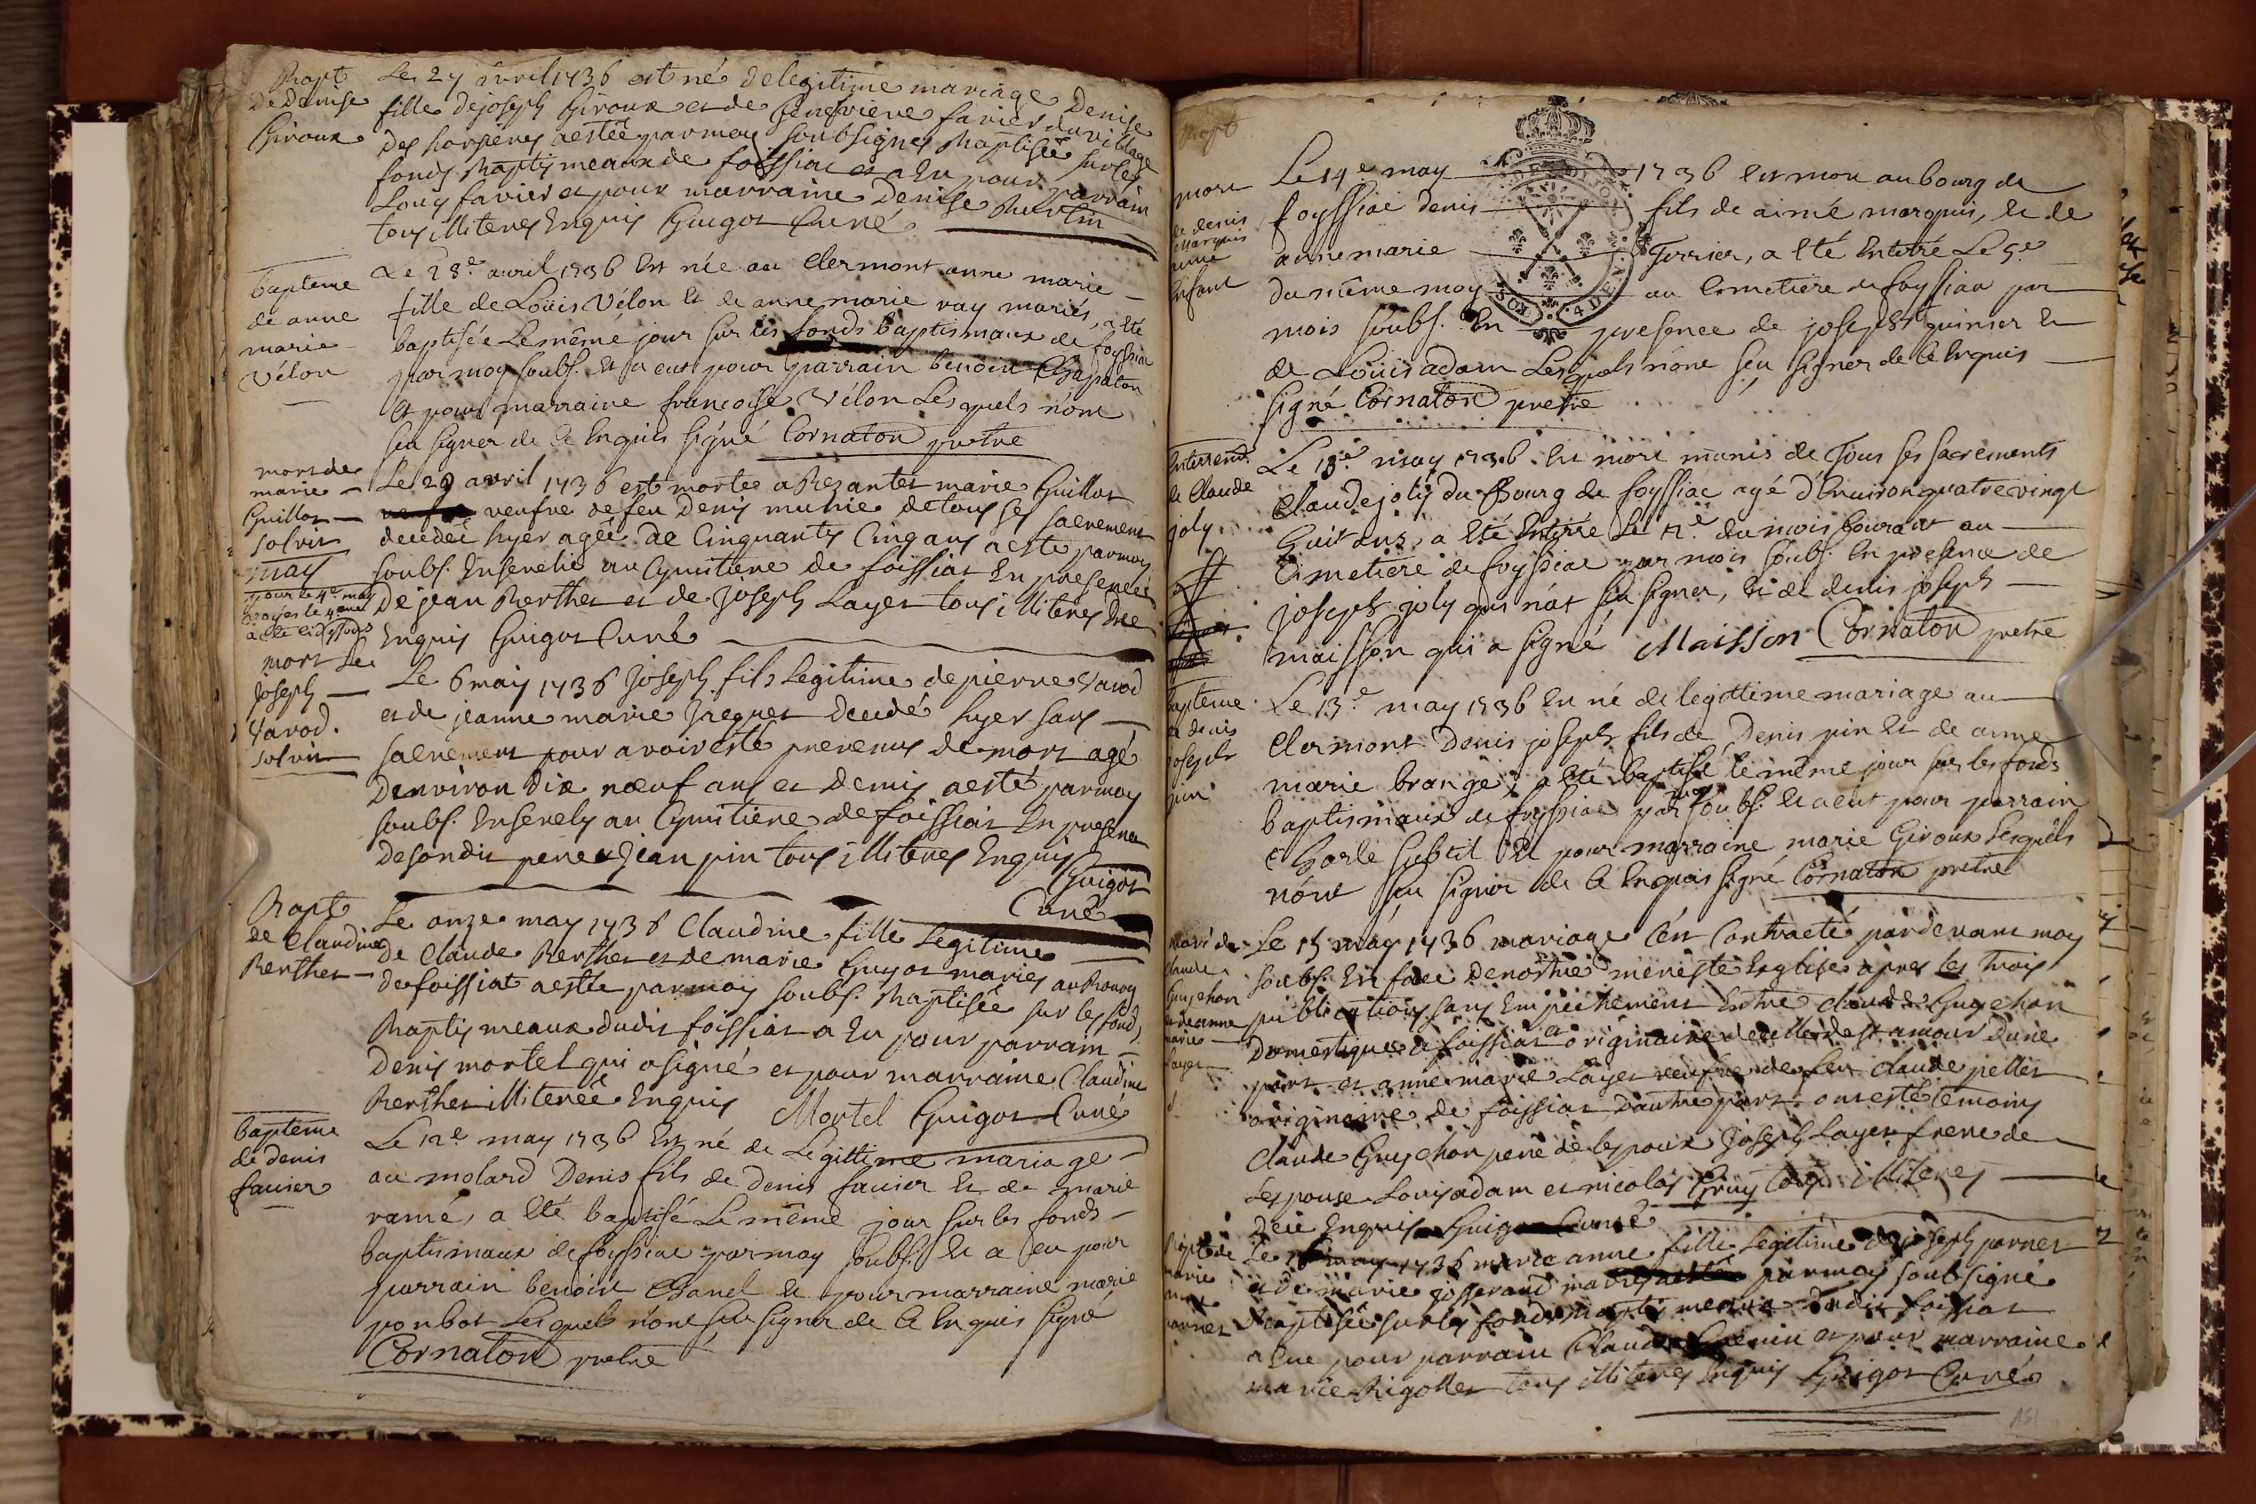 Bapt
de Denise
Giroux
Le 27 avril 1736 est né de legitime mariage Denise
fille de joseph Giroux et de favier du village
des aestée par moy soubsigné Baptisée sur les
fonds Baptismeaux de foissiat et a Eu pour parrain
Louis favier et pour marraine Denise
tous illiterés Enquis Guigot Curé
bapteme
de anne
marie
Vélon
Le 28e avril 1736 Est née au Clermont anne marie
fille de Loüis Vélon Et de anne marie ray mariés, a été
baptisée Le même jour sur les fonds baptismaux de foyssiac
par moy soubs. Et a eut pour parrain benoit Chapaton
Et pour marraine francoise Vélon Lesquels n'ont
sçu signer de Ce Enquis signé Cornaton pretre
mort de
marie
Guillot
solvit
Le 29 avril 1736 est morte a Bezantet marie Guillot
veufve de feu Denis munie de tous ses sacrement
decedée hyer agée de Cinquante Cinq ans a esté par moy
soubs. Ensevelie au Cymitiere de foissiat En presence
De jean Berthet et de Joseph Layer tous illiterés De
Enquis Guigot Curé
may
pour le 4e may
mort de
joseph
Varod.
solvit
Le 6 may 1736 Joseph fils Legitime de pierre Varod
et de jeanne marie Jreguet decedé hyer sans
sacrement pour avoir esté prevenus de mort agé
Denviron dix nœuf ans et demis a esté par moy
soubs. Ensevely au Cymitiere de foissiat En presence
desondit pere et Jean pin tous illiterés Enquis
Guigot
Curé
Bapt
de Claudine
Berthet
Le onze may 1736 Claudine fille Legitime
de Claude Berthet et de marie Guyot mariés au Bourg
de foissiat aestée par moy soubs. Baptisée sur les fonds
Baptismeaux dudit foissiat a Eu pour parrain
Denis mortel qui a signé et pour marraine Claudine
Berthet illiterée Enquis Mortel Guigot Curé
bapteme
de denis
favier
Le 12e may 1736 Est né de Legittime mariage
au molard Denis fils de Denis favier Et de marie
ramé, a été baptisé Le même jour sur les fonds
baptismaux de foyssiac par moy soubs. Et a eu pour
parrain benoit Chanel Et pour marraine marie
ponbot Lesquels n'ont sçu signer de Ce Enquis signé
Cornaton pretre
Bapt
mort
de denis
Marquis
Enfant
Le 14e may 1736 Est mort au bourg de
foyssiac denis fils de aimé marquis, Et de
anne marie Ferrier, a été Enterré Le 5e
du même moy au Cimetiere de foyssiac par
mois soubs. En presence de joseph quinier Et
de Loüis adam Lesquels n'ont sçu signer de Ce Enquis
signé Cornaton pretre
Enterremt.
de Claude
joly.
Le 10e may 1736. Est mort munis de Tous ses sacrements
Claude joly du Bourg de foyssiac agé d'Environ quatre vingt
huit ans, a été Enterré Le 12e du mois Courant au
Cimetiere de foyssiac par mois soubs. En presence de
joseph joly qui n'at sçu signer, Et de denis joseph
maisson qui a signé Maisson Cornaton pretre
bapteme
de denis
joseph
pin
Le 13e may 1736 Est né de legittime mariage au
Clermont Denis joseph fils de Denis pin Et de anne
marie brangé, a été baptisé le même jour sur les fonds
baptismaux de foyssiac par moy soubs. Et a eut pour parrain
Charle subtil Et pour marraine marie Giroux Lesquels
n'ont sçu signer de Ce Enquis signé Cornaton pretre
mari de
claude
Guychon
et de anne
marie
Layer
Le 15 may 1736 mariage s'est Contracté pardevant moy
soubs. En face De nostre mere ste Esglise apres les trois
publications sans Empéchement Entre Claude Guychon
Domestique a foissiat et originaire de ville de st amour Dune
part et anne marie Layer veufve de feu Claude pellet
originaire de foissiat Dautre part ont esté temoins
Claude Guychon pere de lespoux Joseph Layer frere de
Lespouse Louis adam et nicolas Gruy tous illiterés
De ce Enquis Guigot Curé
Bapt de
marie
anne
pornet
Le 16 may 1736 marie anne fille Legitime de joseph pornet
et de marie josserand mariés par moy soubsigné
Baptisée sur les fonds Baptismeaux dudit foissiat
a Eue pour parrain Claude et pour marraine
marie Rigollet tous illiterés Enquis Guigot Curé
151